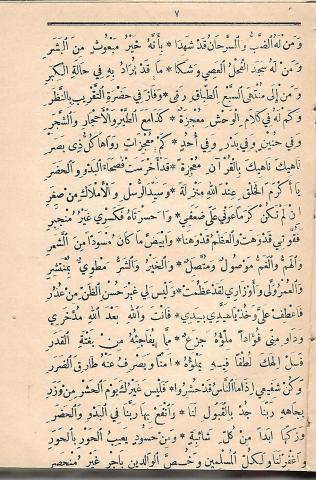 ٧
ومن له الضب والسرحان قد شهدا * بأنه خير مبعوث من البشر
ومن له سجد الفحل العصي وشكا * ما قد يراد به في حالة الكبر
ومن إلى منتهى السبع الطباق رقى * وفاز في حضرة التقريب بالنظر
وكم له في كلام الوحش معجزة * كذا مع الطير والأحجار والشجر
وفي حنين وفي بدر وفي أحد * كم معجزات رواها كل ذي بصر
ناهيك ناهيك بالقرآن معجزة * قد أخرست فصحاء البدو والحضر
يا أكرم الخلق عند الله منزلة * وسيد الرسل والأملاك من صغر
إن لم تكن كرما عوني على ضعفي * واحسرتاه فكسري غير منجبر
فقوتي قد وهت والعظم قد وهنا * وابيض ما كان مسودا من الشعر
والهم والغم موصول ومتصل * والخير والشر مطوي بمنتشر
والعمر ولى وأوزاري لقد عظمت * وليس لي غير حسن الظن من عذر
فاعطف علي وخذ يا سيدي بيدي * فأنت والله بعد الله مدخري
وداو مني فؤادا ملؤه جزع * مما يفاجئه من بغتة القدر
فسل إلهك لطفا فيه يملؤه * أمنا ويصرف عنه طارق الضرر
وكن شفيعي إذا ما الناس قد حشروا * فليس غيرك يوم الحشر من وزر
بجاهه ربنا جد بالقبول لنا * وانفع بها ربنا في البدو والحضر
وزكها أبدا من كل شائبة * ومن حسود يعيب الحور بالحور
واغفر لنا ولكل المسلمين وخص الوالدين بأجر غير منحصر